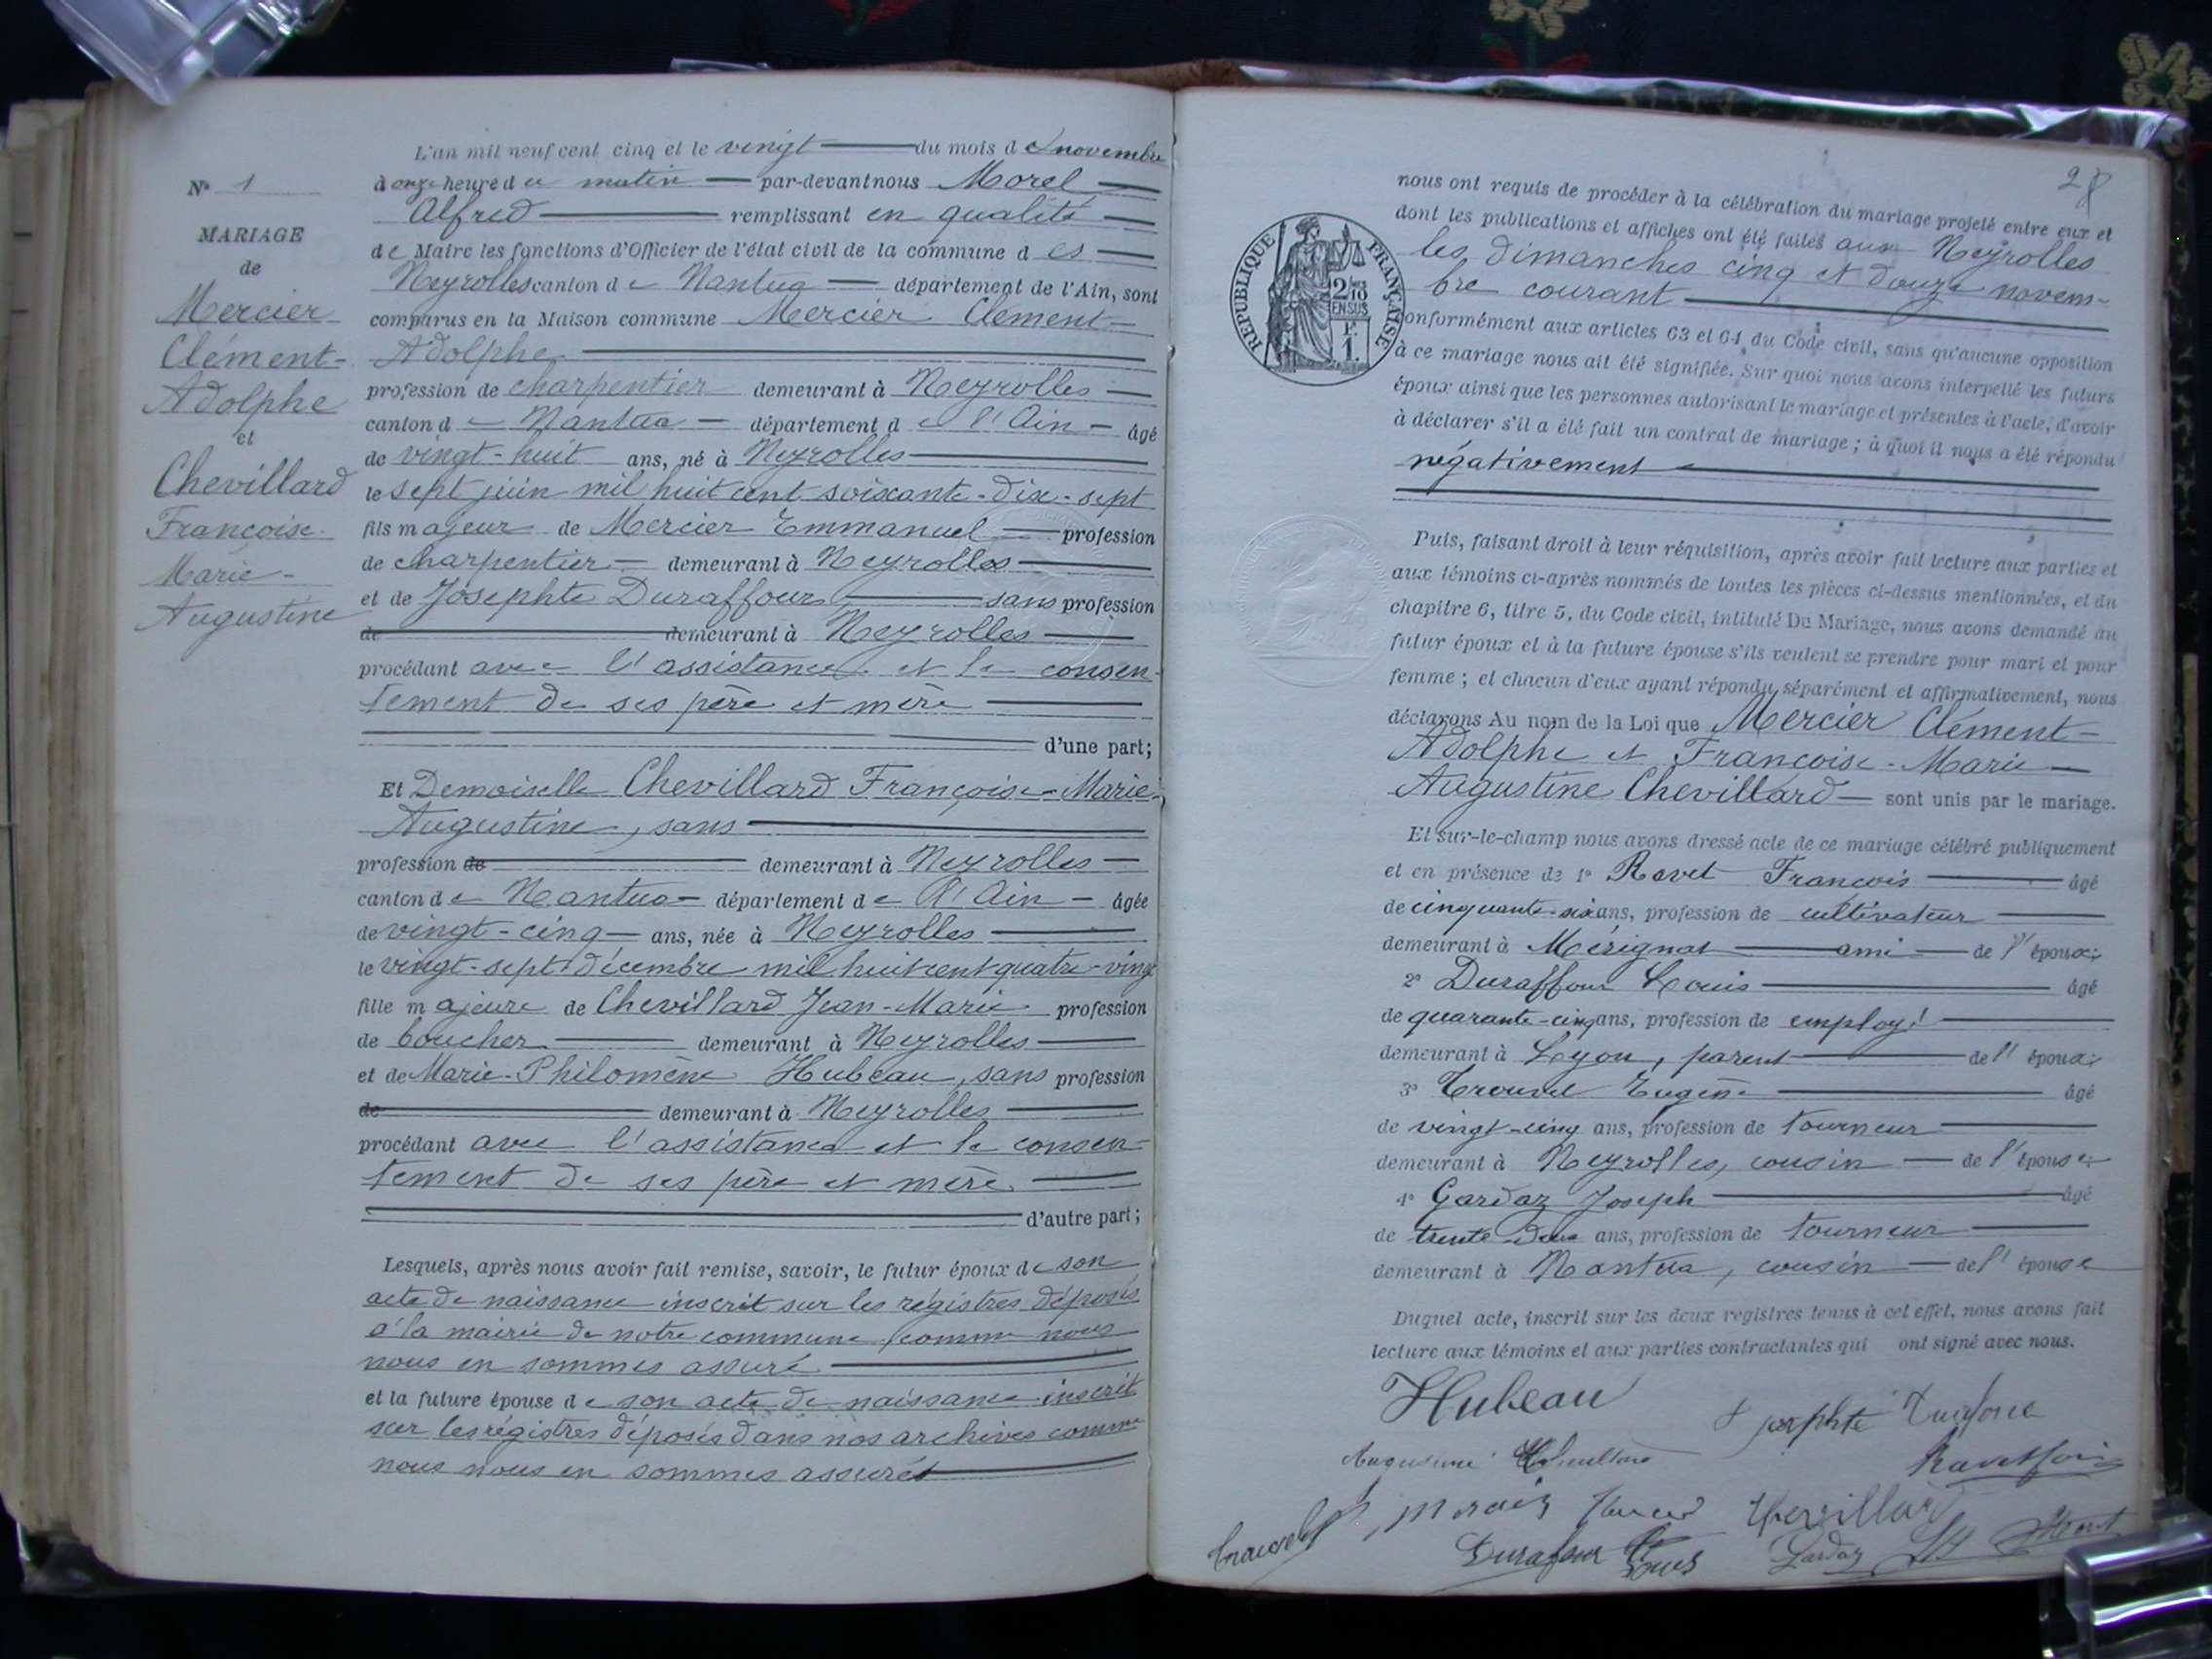 L'an mil neuf cent cinq et le vingt du mois de novembre
à onze heure du matin par-devant nous Morel
Alfred remplissant en qualité
de Maire les fonctions d'Officier de l'état civil de la commune des
Neyrolles canton de Nantua département de l'Ain, sont
comparus en la Maison commune Mercier Clément-
Adolphe
profession de charpentier demeurant à Neyrolles
canton de Nantua département de l'Ain âgé
de vingt-huit ans, né à Neyrolles
le sept juin mil huit cent soixante-dix-sept
fils majeur de Mercier Emmanuel profession
de charpentier demeurant à Neyrolles
et de Josephte Duraffour sans profession
de demeurant à Neyrolles
procédant avec l'assistance et le consen-
tement de ses père et mère
d'une part;
Et Demoiselle Chevillard Françoise-Marie-
Augustine, sans
profession de demeurant à Neyrolles
canton de Nantua département de l'Ain âgée
de vingt-cinq ans, née à Neyrolles
le vingt-sept décembre mil huit cent quatre-vingt
fille majeure de Chevillard Jean-Marie profession
de boucher demeurant à Neyrolles
et de Marie-Philomène Hubeau, sans profession
de demeurant à Neyrolles
procédant avec l'assistance et le consen-
tement de ses père et mère
d'autre part;
Lesquels, après nous avoir fait remise, savoir, le futur époux de son
acte de naissance inscrit sur les régistres déposés
à la mairie de notre commune, comme nous
nous en sommes assuré
et la future épouse de son acte de naissance inscrit
sur les régistres déposés dans nos archives comme
nous nous en sommes assurés
N° 1
MARIAGE
de
Mercier
Clément-
Adolphe
et
Chevillard
Françoise-
Marie-
Augustine
28
REPUBLIQUE FRANÇAISE
2/10
EN SUS
F.
1.
nous ont requis de procéder à la célébration du mariage projeté entre eux et
dont les publications et affiches ont été faites aux Neyrolles
les dimanches cinq et douze novem-
bre courant
conformément aux articles 63 et 64 du Code civil, sans qu'aucune opposition
à ce mariage nous ait été signifiée. Sur quoi nous avons interpellé les futurs
époux ainsi que les personnes autorisant le mariage et présentes à l'acte, d'avoir
à déclarer s'il a été fait un contrat de mariage; à quoi il nous a été répondu
négativement
Puis, faisant droit à leur réquisition, après avoir fait lecture aux parties et
aux témoins ci-après nommés de toutes les pièces ci-dessus mentionnées, et du
chapitre 6, titre 5, du Code civil, intitulé Du Mariage, nous avons demandé au
futur époux et à la future épouse s'ils veulent se prendre pour mari et pour
femme; et chacun d'eux ayant répondu séparément et affirmativement, nous
déclarons Au nom de la Loi que Mercier Clément-
Adolphe et Françoise-Marie
Augustine Chevillard sont unis par le mariage.
Et sur-le-champ nous avons dressé acte de ce mariage célébré publiquement
et en présence de 1° Ravet François âgé
de cinquante-six ans, profession de cultivateur
demeurant à Mérignat ami de l'époux;
2° Duraffour Louis âgé
de quarante-cinq ans, profession de employé
demeurant à Lyon, parent de l'époux;
3° Eugène âgé
de vingt-cinq ans, profession de tourneur
demeurant à Neyrolles, cousin de l'épouse;
4° Gardaz Joseph âgé
de trente deux ans, profession de tourneur
demeurant à Nantua, cousin de l'épouse
Duquel acte, inscrit sur les deux registres tenus à cet effet, nous avons fait
lecture aux témoins et aux parties contractantes qui ont signé avec nous.
Hubeau
Josephte
Augustine
Chevillard
Durafour Louis Gardaz